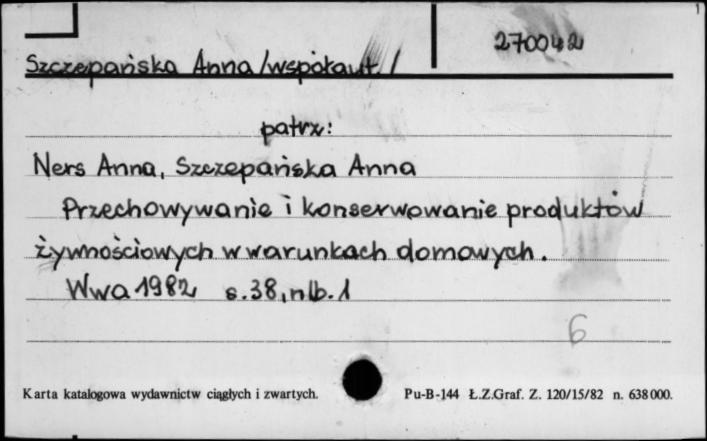 1
270042
Szczepańska Anna /współaut./
patrz:
Ners Anna, Szczepańska Anna
Przechowywanie i konserwowanie produktów
żywnościowych w warunkach domowych.
Wwa 1982 s.38, nlb.1
6
Karta katalogowa wydawnictw ciągłych i zwartych. Pu-B-144 Ł.Z.Graf. Z. 120/15/82 n. 638000.